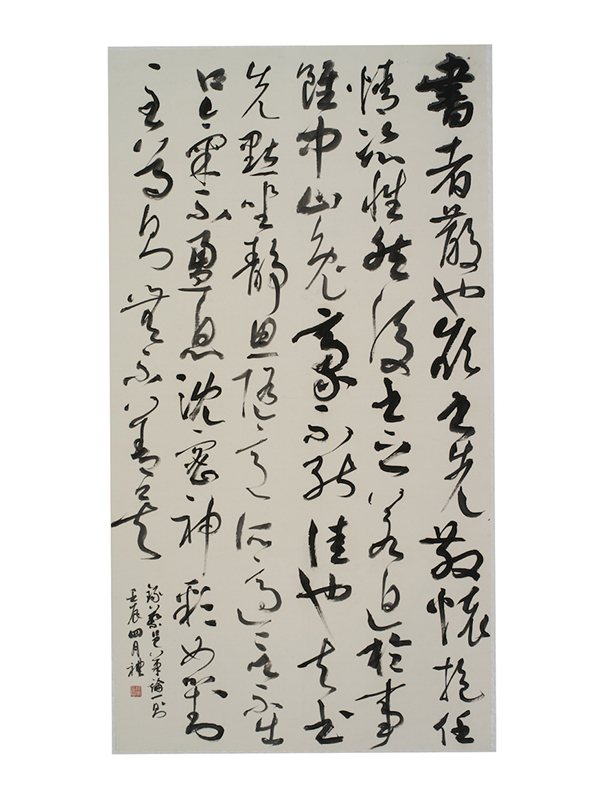 書者散也欲書先散懷抱任
情恣性然後書之若迫於事
雖中山兔豪不能佳也夫書
先默坐靜思隨意所適言不出
口氣不盈息沈密神彩如對
至尊則無不善矣
錄蔡邕筆論一則
壬辰四月禮